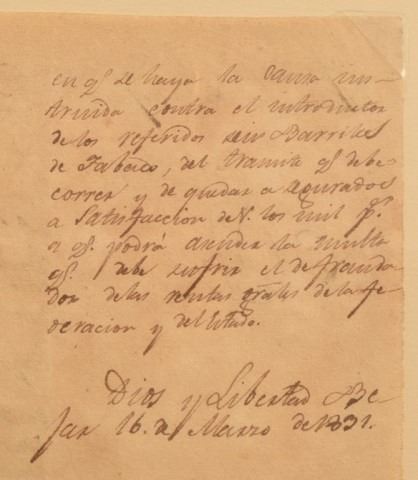 en q.e se haya la causa ins-
truida contra el introductor
de los referidos seis Barriles
de Tabaco, del tramite q.e debe
correr y de quedar asegurados
a satisfaccion de V. los mil p.s
a q.e podrá ascender la multa
q.e debe sufrir el defrauda
dor de las rentas grales de la fe
deracion y del Estado.
Dios y Libertad Be
jar 16. de Marzo de 1831.